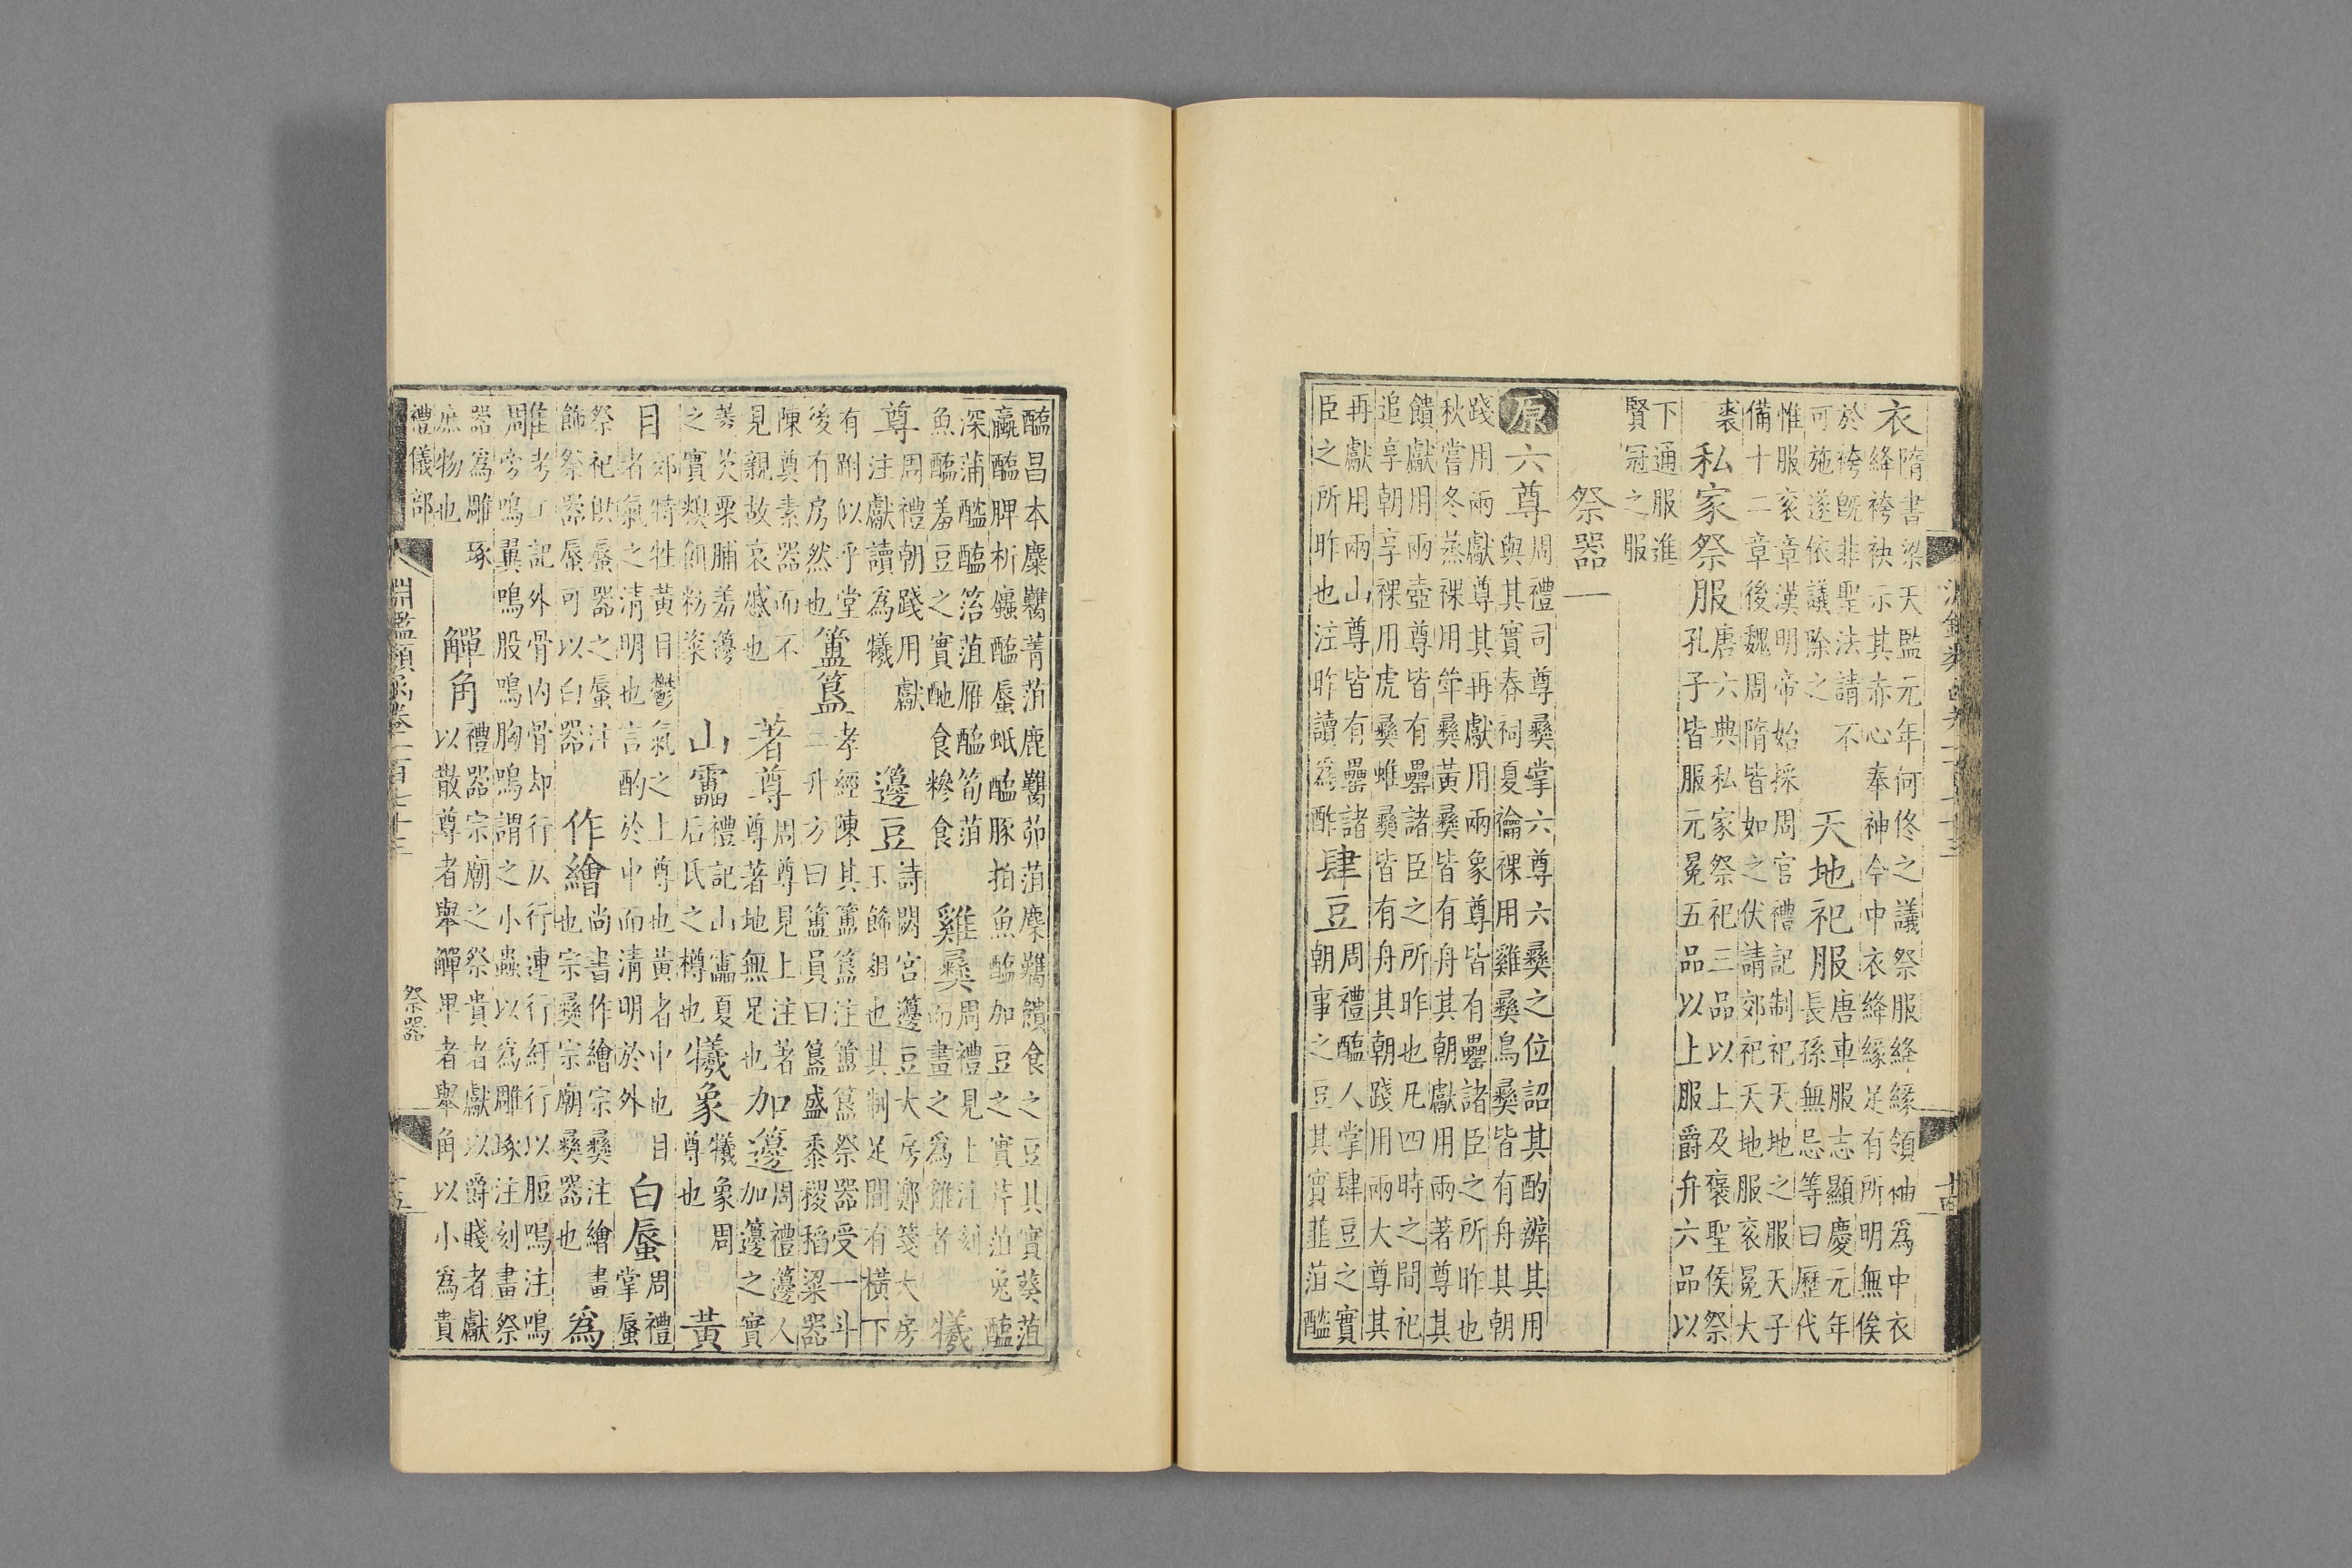 衣隋書梁天監元年何佟之議祭服絳緣領袖爲中衣
絳袴袜示其赤心奉神今中衣絳緣足有所明無俟
於袴旣非聖法請不
可施遂依議除之
天地祀服唐車服志顯慶元年
長孫無忌等曰歷代
惟服袞章漢明帝始採周官禮記制祀天地之服天子
備十二章後魏周隋皆如之伏請郊祀天地服袞冕大
裘
私家祭服唐六典私家祭祀三品以上及褒聖侯祭
孔子皆服元冕五品以上服爵弁六品以
下通服進
賢冠之服
祭器一
原六尊周禮司尊彝掌六尊六彝之位詔其酌辨其用
與其實春祠夏禴祼用雞彝鳥彝皆有舟其朝
踐用兩獻尊其再獻用兩象尊皆有罍諸臣之所昨也
秋嘗冬蒸祼用斝彝黃彝皆有舟其朝獻用兩著尊其
饋獻用兩壺尊皆有罍諸臣之所昨也凡四時之間祀
追享朝享祼用虎彝蜼彝皆有舟其朝踐用兩大尊其
再獻用兩山尊皆有罍諸
臣之所昨也注昨讀爲酢
肆豆周禮醢人掌肆豆之實
朝事之豆其實韭菹醓
十四
醢昌本麋臡菁菹鹿臡茆菹麋臡饋食之豆其實葵菹
蠃醢脾析蠯醢蜃蚳醢豚拍魚醢加豆之實芹菹兔醢
深蒲醓醢箈菹雁醢筍菹
魚醢羞豆之實酏食糝食
雞彝周禮見上注刻
而畫之爲雞者
犧
尊周禮朝踐用獻
注獻讀爲犧
籩豆詩閟宮籩豆大房鄭箋大房
玉飾俎也其制足間有橫下
有跗似乎堂
後有房然也
簠簋孝經陳其簠簋注簠簋祭器受一斗
二升方曰簠員曰簋盛黍稷稻粱器
陳奠素器而不
見親故哀慼也
著尊周尊見上注著
尊著地無足也
加籩周禮籩人
加籩之實
菱芡栗脯羞籩
之實糗餌粉粢
山罍禮記山罍夏
后氏之樽也
犧象犧象周
尊也
黃
目郊特牲黃目鬱氣之上尊也黃者中也目
者氣之清明也言酌於中而清明於外
白蜃周禮
掌蜃
祭祀供蜃器之蜃注
飾祭器蜃可以白器
作繪尚書作繪宗彝注繪畫
也宗彝宗廟彝器也
爲
雕考工記外骨內骨却行仄行連行紆行以脰鳴注鳴
周旁鳴翼鳴股鳴胸鳴謂之小蟲以爲雕琢注刻畫祭
器爲雕琢
庶物也
觶角禮器宗廟之祭貴者獻以爵賤者獻
以散尊者舉觶卑者舉角以小爲貴
禮儀部 淵鑑類函卷一百七十三 祭器 十五